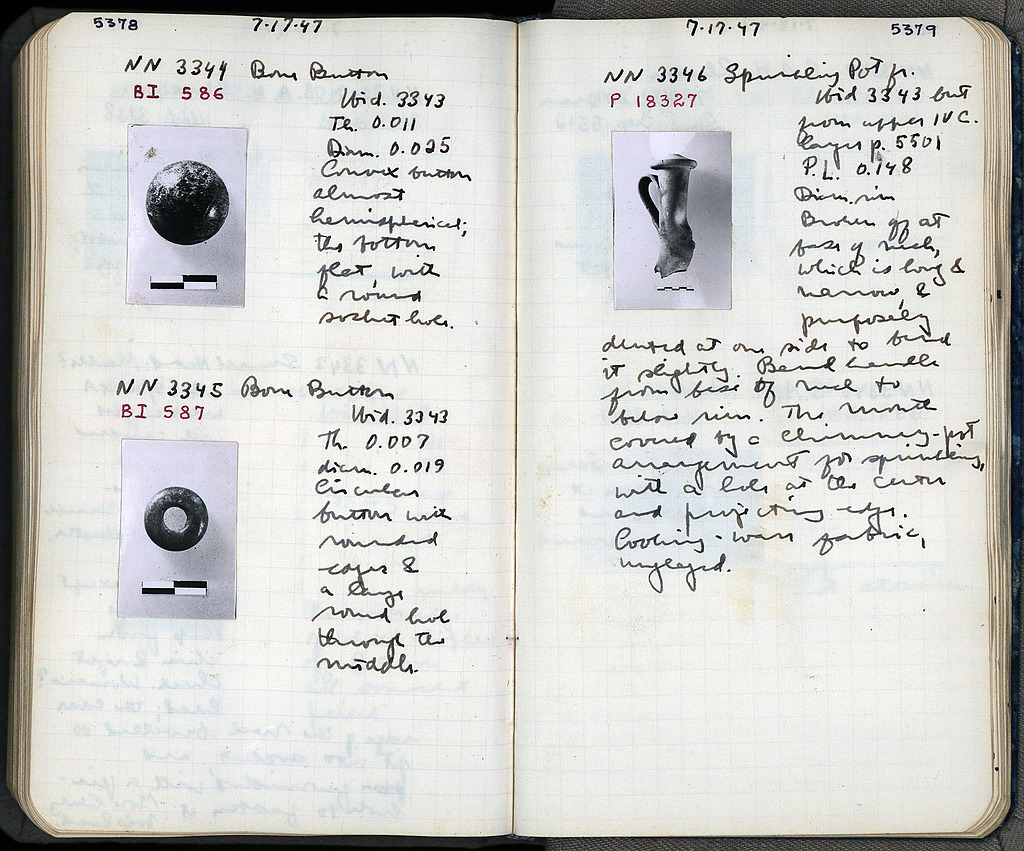 5378
7·17·47
NN 3344 Bone Button
BI 586
Ibid. 3343
Th. 0.011
Diam. 0.025
Convex button
almost
hemispherical;
the bottom
flat, with
a round
socket hole.
NN 3345 Bone Button
BI 587
Ibid. 3343
Th. 0.007
diam. 0.019
Circular
button with
rounded
edges &
a large
round hole
through the
middle.
7·17·47
5379
NN 3346 Sprinkling Pot fr.
P 18327
Ibid 3343 but
from upper IV C.
layer p. 5501
P.L. 0.148
Diam. rim
Broken off at
base of neck,
which is long &
narrow, &
purposely
dented at one side to bend
it slightly. Band handle
from base of neck to
below rim. The mouth
covered by a chimney-pot
arrangement for sprinkling,
with a hole at the center
and projecting edge.
Cooking-ware fabric,
unglazed.